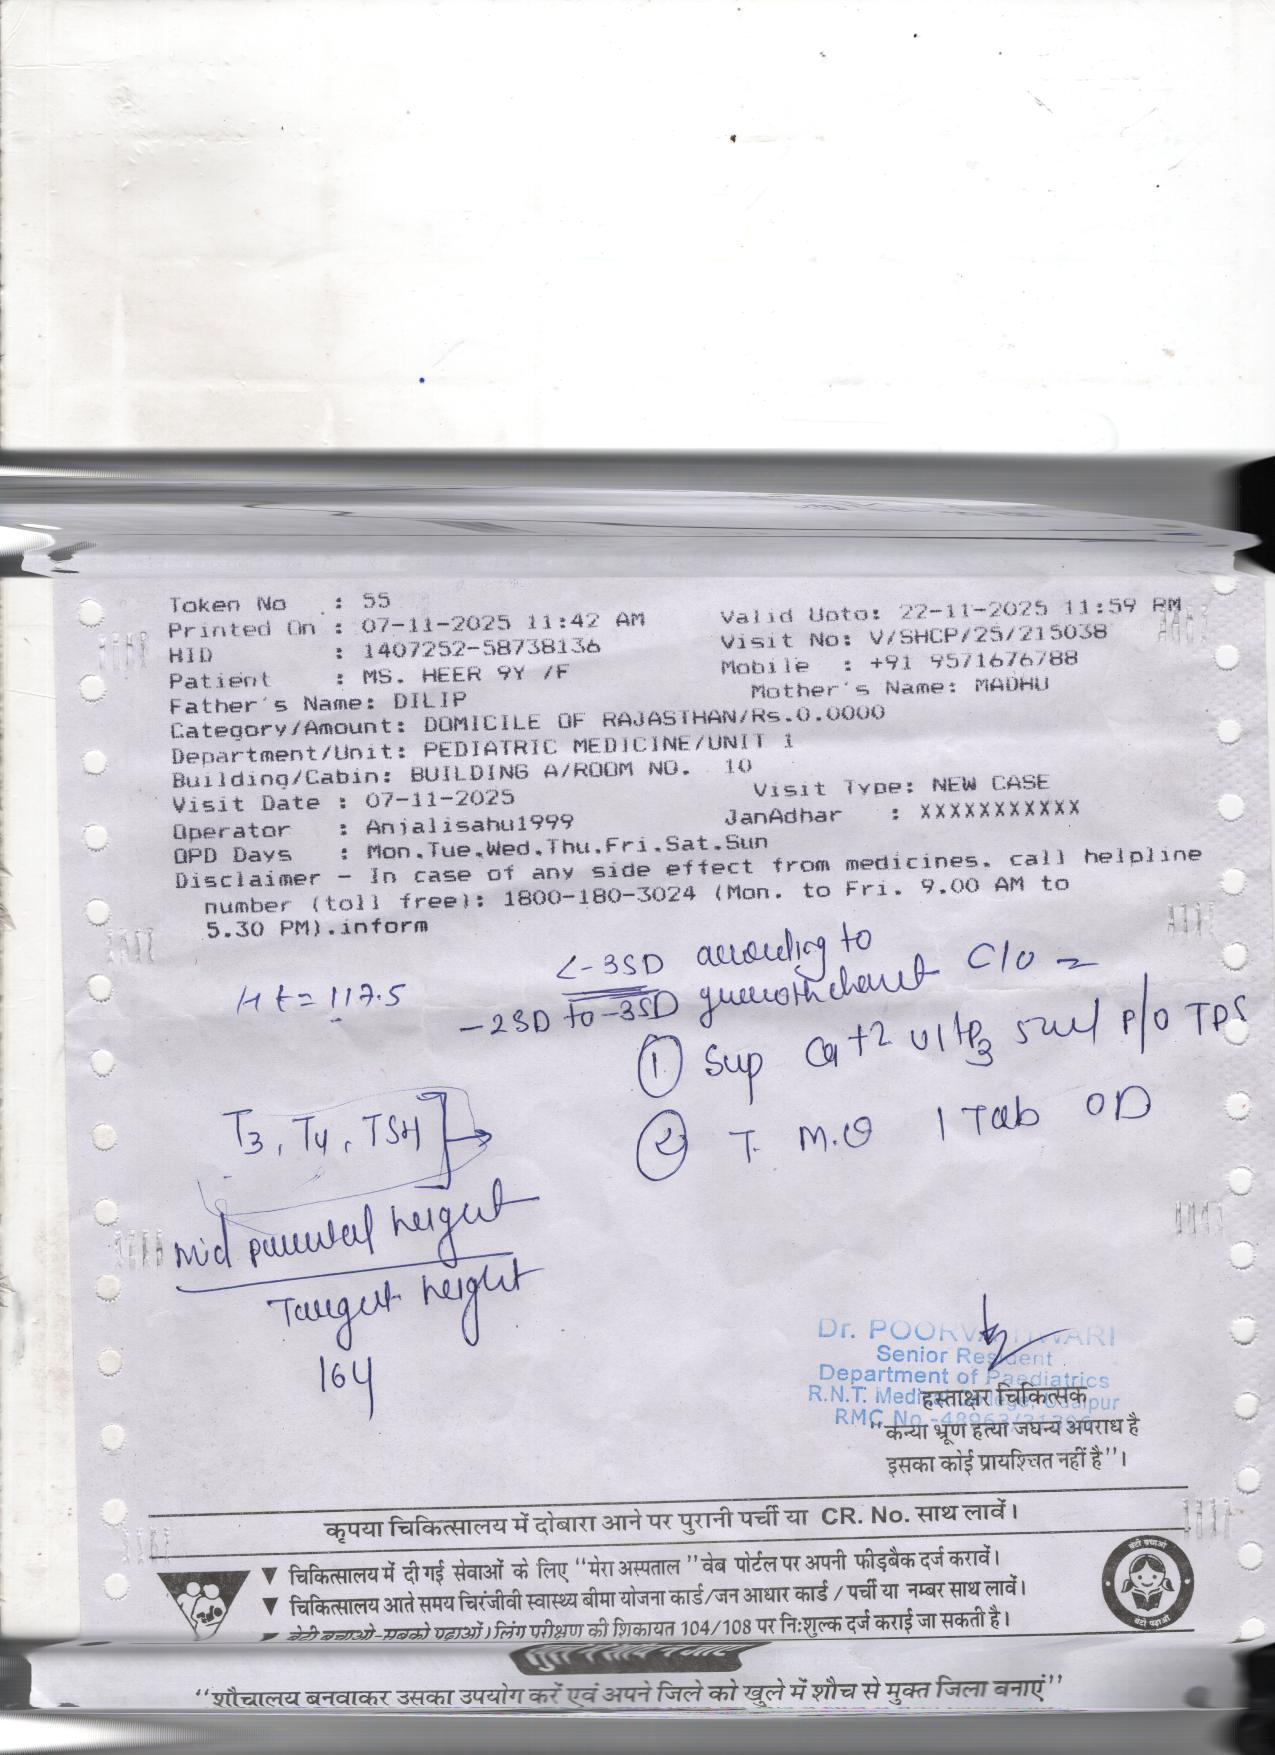 Token No : 55
Printed On : 07-11-2025 11:42 AM Valid Upto: 22-11-2025 11:59 PM
HID : 1407252-58738136 Visit No: V/SHCP/25/215038
Patient : MS. HEER 9Y /F Mobile : +91 9571676788
Father's Name: DILIP Mother's Name: MADHU
Category/Amount: DOMICILE OF RAJASTHAN/Rs.0.0000
Department/Unit: PEDIATRIC MEDICINE/UNIT 1
Building/Cabin: BUILDING A/ROOM NO. 10
Visit Date : 07-11-2025 Visit Type: NEW CASE
Operator : Anjalisahu1999 JanAdhar : XXXXXXXXXXX
OPD Days : Mon.Tue.Wed.Thu.Fri.Sat.Sun
Disclaimer - In case of any side effect from medicines. call helpline
number (toll free): 1800-180-3024 (Mon. to Fri. 9.00 AM to
5.30 PM).inform
<-3SD according to
Ht = 117.5 -2SD to -3SD growth chart C/O
① Sup Ca+2 vit D3 5ml P/O TDS
T3, T4, TSH
② T. M.V 1 Tab OD
Mid parental height
Target height
164
Dr. POORVA
Senior Resident
Department of Paediatrics
R.N.T. Medical College, Udaipur
हस्ताक्षर चिकित्सक
RMC No.-
“कन्या भ्रूण हत्या जघन्य अपराध है
इसका कोई प्रायश्चित नहीं है”।
कृपया चिकित्सालय में दोबारा आने पर पुरानी पर्ची या CR. No. साथ लावें।
▼ चिकित्सालय में दी गई सेवाओं के लिए “मेरा अस्पताल” वेब पोर्टल पर अपनी फीडबैक दर्ज करावें।
▼ चिकित्सालय आते समय चिरंजीवी स्वास्थ्य बीमा योजना कार्ड/जन आधार कार्ड / पर्ची या नम्बर साथ लावें।
▼ बेटी बचाओ-सबको पढ़ाओ। लिंग परीक्षण की शिकायत 104/108 पर निःशुल्क दर्ज कराई जा सकती है।
बेटी बचाओ
बेटी पढ़ाओ
“शौचालय बनवाकर उसका उपयोग करें एवं अपने जिले को खुले में शौच से मुक्त जिला बनाएं”